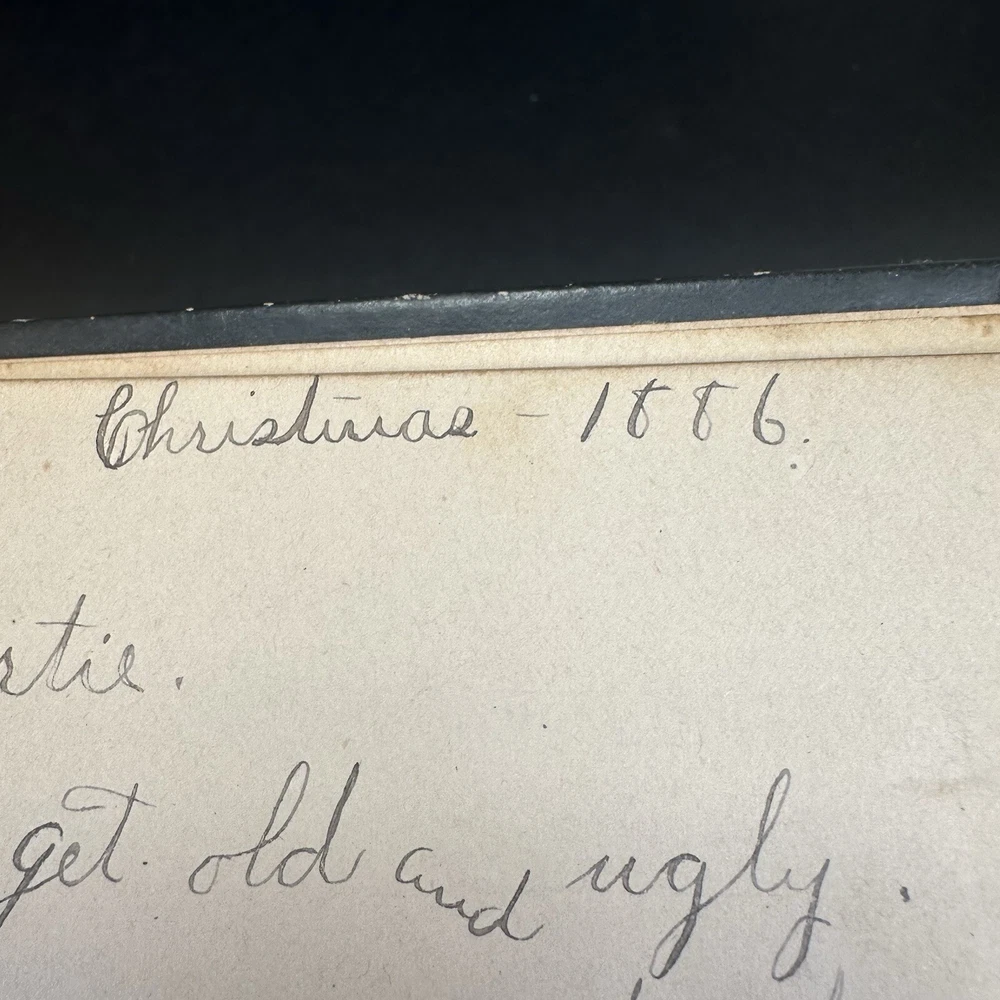 Christmas - 1886.
rtie.
get old and ugly.